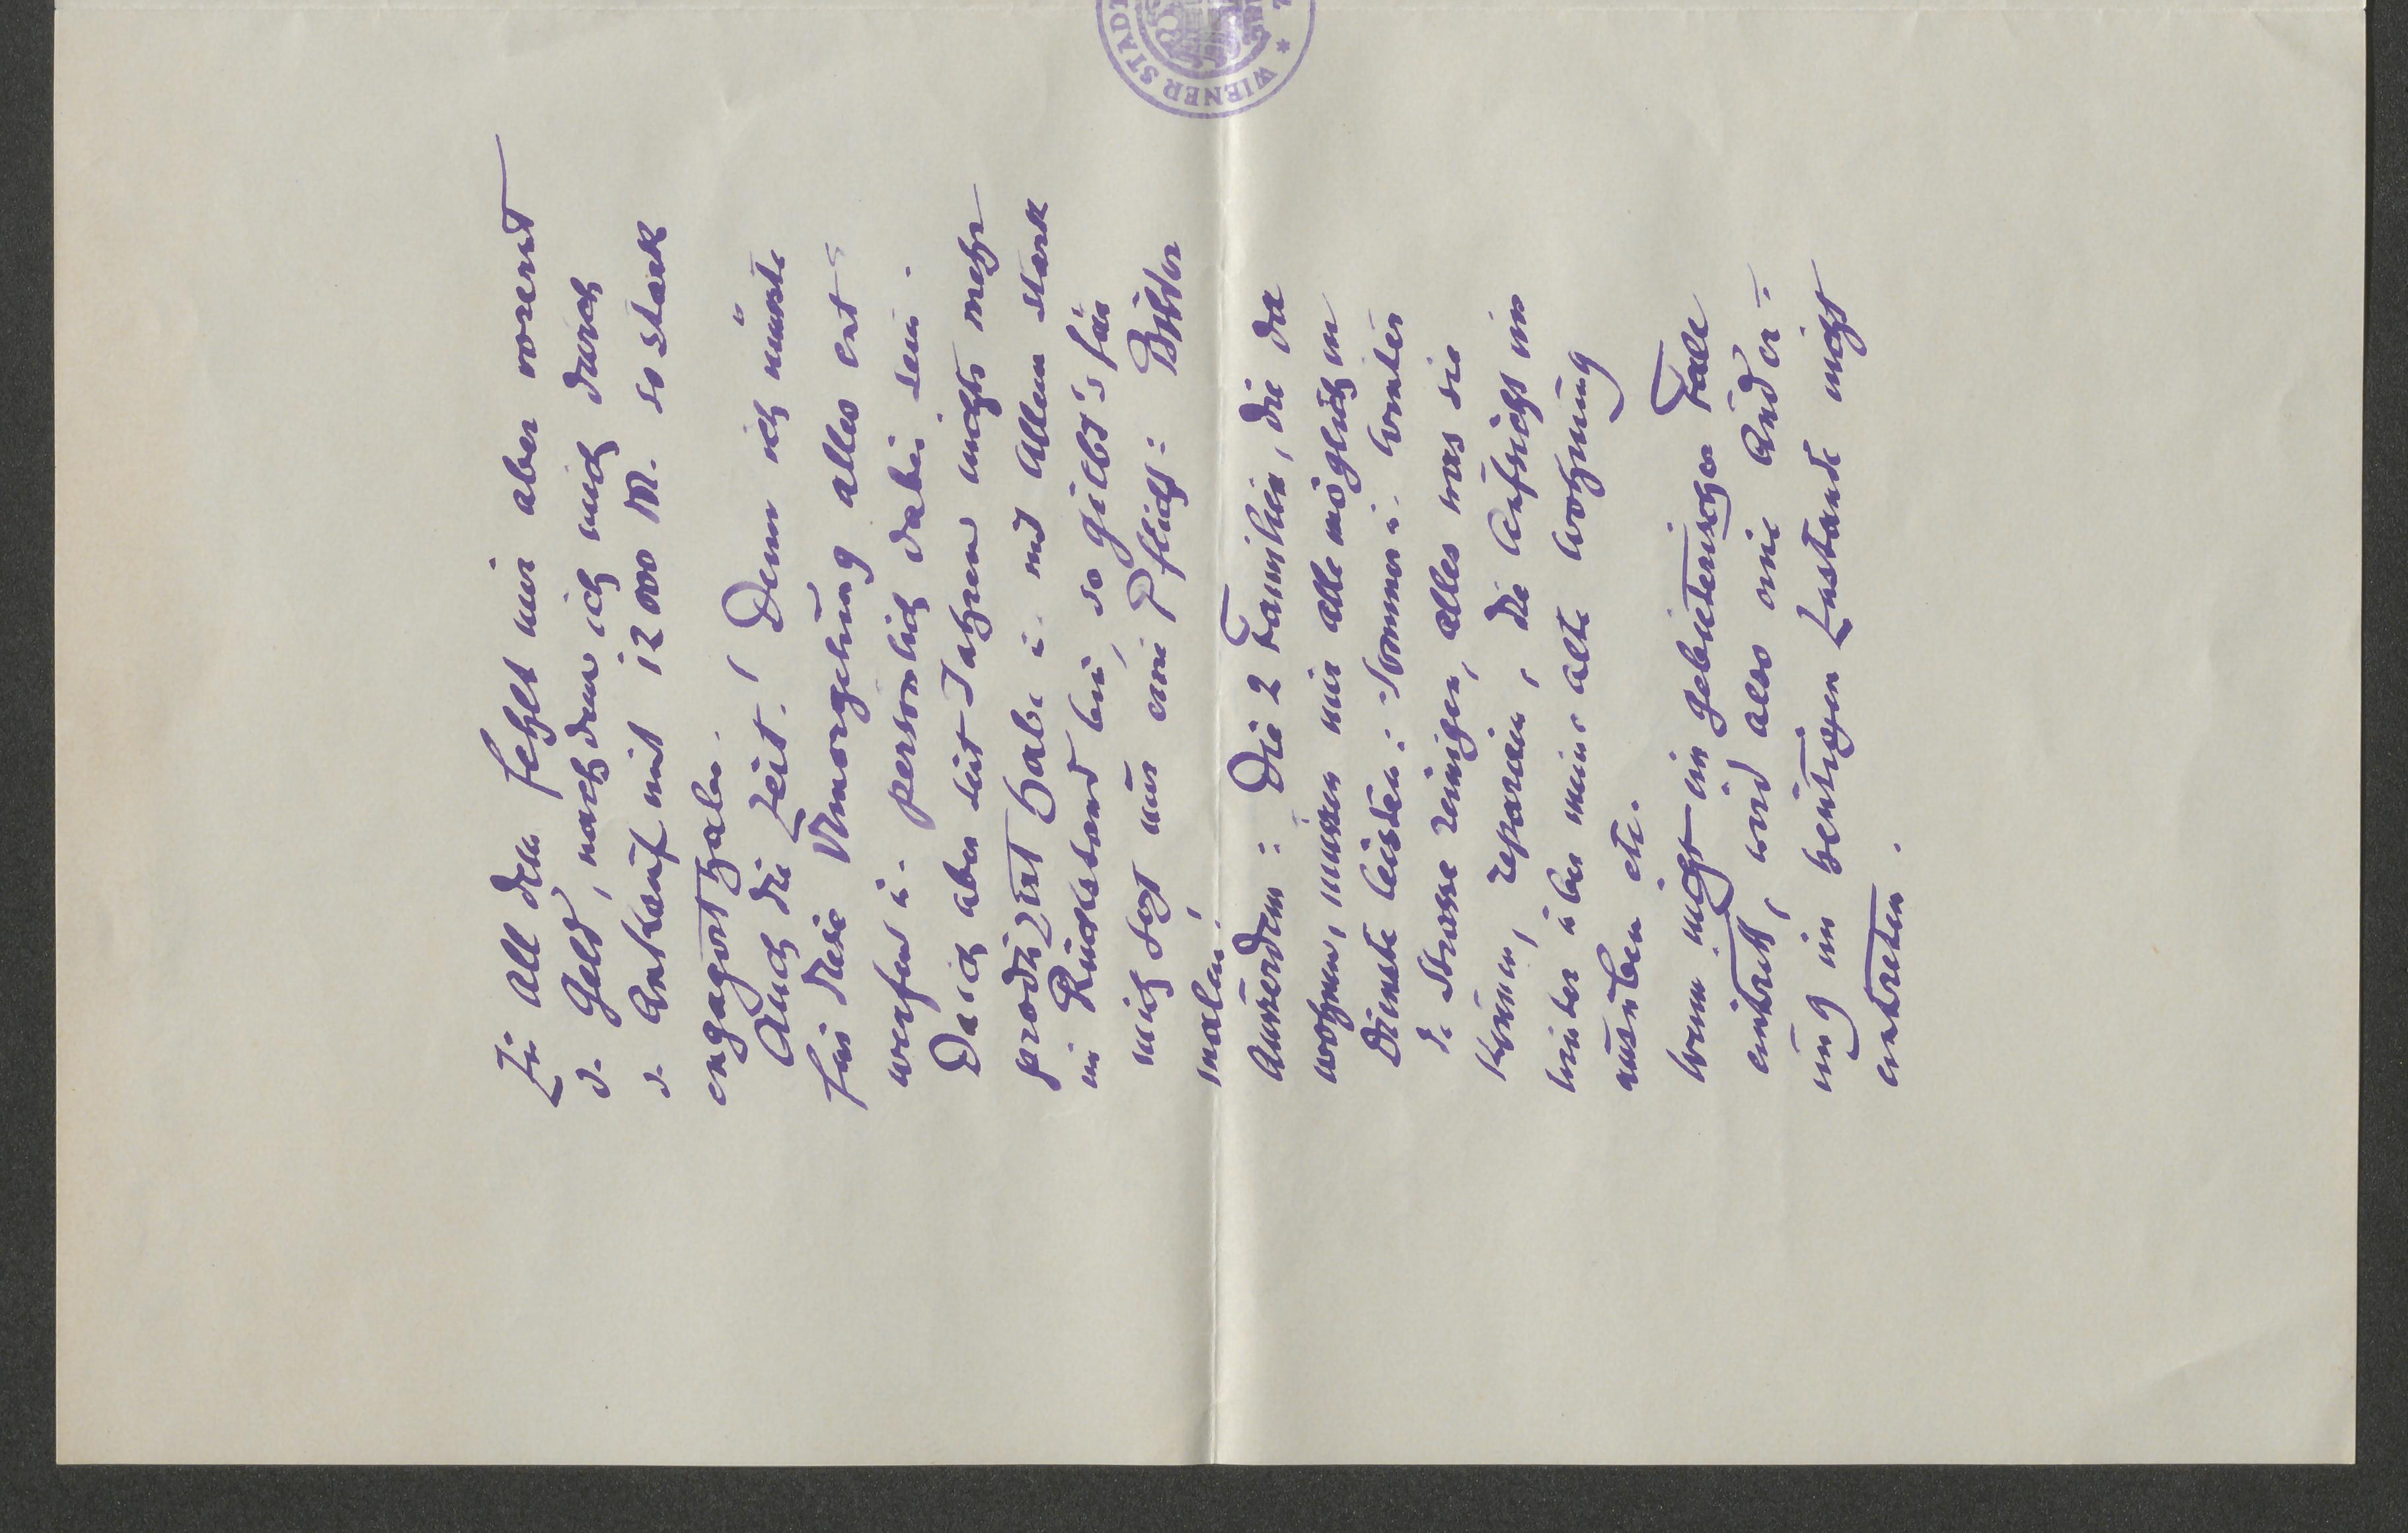 Zu all dem fehlt mir aber vorerst
d. Geld, nachdem ich mich durch
d. Ankauf mit 12000 M. so stark
engagirt habe.
Auch die Zeit! Denn ich müsste
für diese Umorgelung alles ent-
werfen u. persönlich dabei sein.
Da ich aber seit Jahren nichts mehr
produzirt habe u. mit Allem stark
im Rückstand bin, so giebt's für
mich jezt nur eine Pflicht: Bilder
malen!
Ausserdem: Die 2 Familien, die da
wohnen, müssen mir alle möglichen
Dienste leisten: Sommer u. Winter
d. Strasse reinigen, alles was sie
können, reparieren, die Aufsicht im
Winter über meine alte Wohnung
ausüben etc.
Wenn nicht ein gebieterischer Fall
eintritt, wird also eine Änder-
ung im heutigen Zustande nicht
eintreten.
WIENER STADT